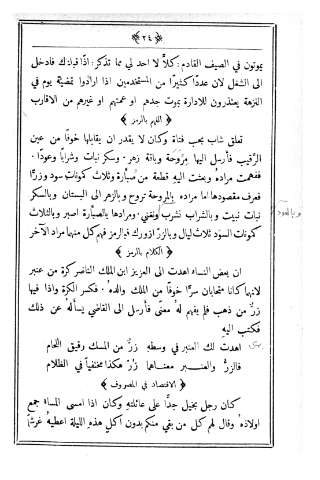 ﴿ ٣٤ ﴾
يموتون في الصيف القادم : كلاَّ لا احد لي مما تذكر : اذًا قيامك فادخل
الى الشغل لان عددًا كثيرًا من المستخدمين اذا ارادوا تمضية يوم في
النزهة يعتذرون للادارة بموت جدهم او عمتهم او غيرهم من الاقارب
﴿ الفهم بالرمز ﴾
تعلق شاب بحب فتاة وكان لا يقدر ان يقابلها خوفًا من عين
الرقيب فأرسل اليها بمروحة وباقة زهر . وسكر نبات وشرابًا وعودًا .
ففهمت مراده وبعثت اليهِ قطعة من صبَّارة وثلاث كمونات سود وزرًّا
فعرف مقصودها اما مراده بالمروحة تروح وبالزهر الى البستان وبالسكر
نبات نبيت وبالشراب نشرب ونغني . ومرادها بالصبَّارة اصبر وبالثلاث
كمونات السود ثلاث ليال وبالزر ازورك فبالرمز فهم كل منهما مراد الآخر
﴿ الكلام بالرمز ﴾
ان بعض النساء اهدت الى العزيز ابن الملك الناصر كرة من عنبر
لانهما كانا متحابان سرًّا خوفًا من الملك والدهُ . فكسر الكرة واذا فيها
زرٌّ من ذهب فلم يفهم لهُ معنًى فأرسل الى القاضي يسألهُ عن ذلك
فكتب اليهِ
اهدت لك العنبر في وسطهِ زرٌّ من المسك رقيق اللحام
فالزرُّ والعنبر معناهما زُرْ هكذا مختفيًا في الظلام
﴿ الاقتصاد في المصروف ﴾
كان رجل بخيل جدًّا على عائلتهِ وكان اذا امسى المساء جمع
اولادهُ وقال لهم كل من بقي منكم بدون اكل هذهِ الليلة اعطيهُ غرشًا